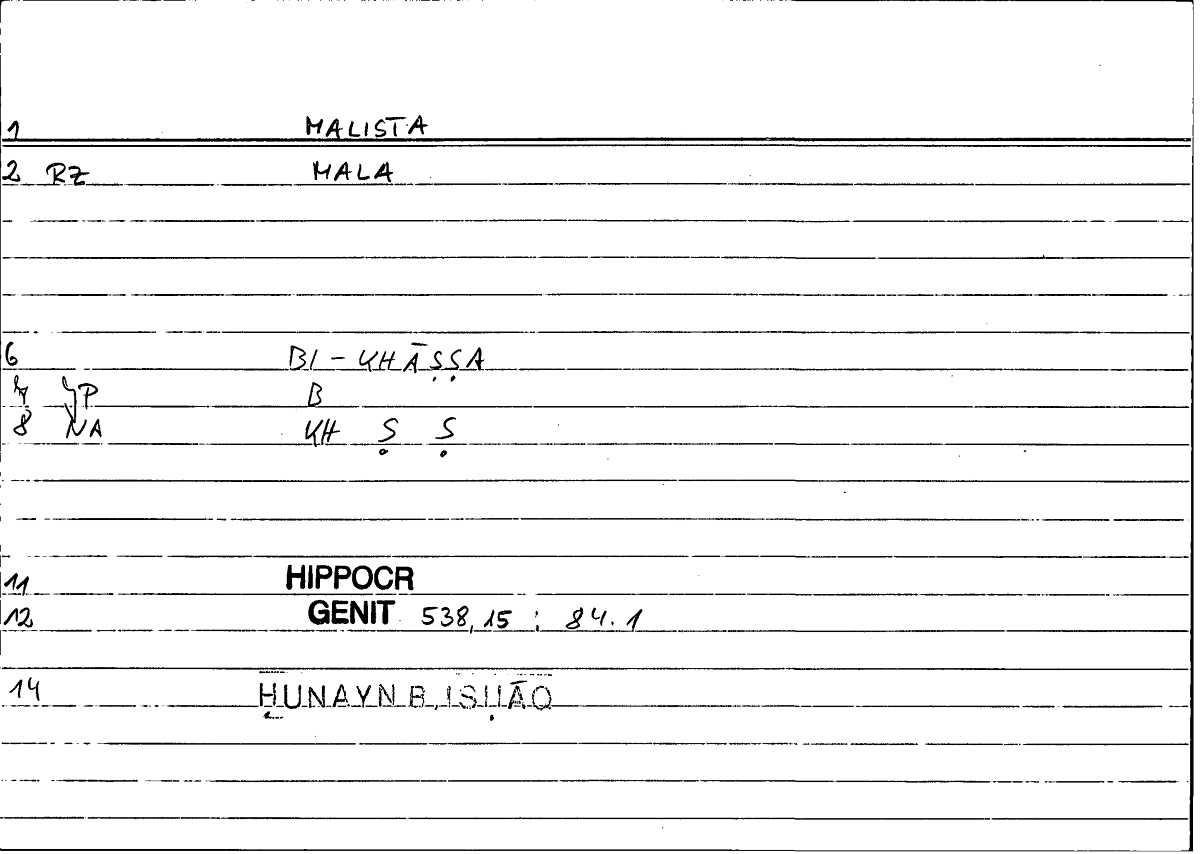 1 MALISTA
2 RZ MALA
6 BI - KHĀṢṢA
7 JP B
8 NA KH Ṣ Ṣ
11 HIPPOCR
12 GENIT 538,15 ; 84.1
14 ḤUNAYN B. ISḤĀQ